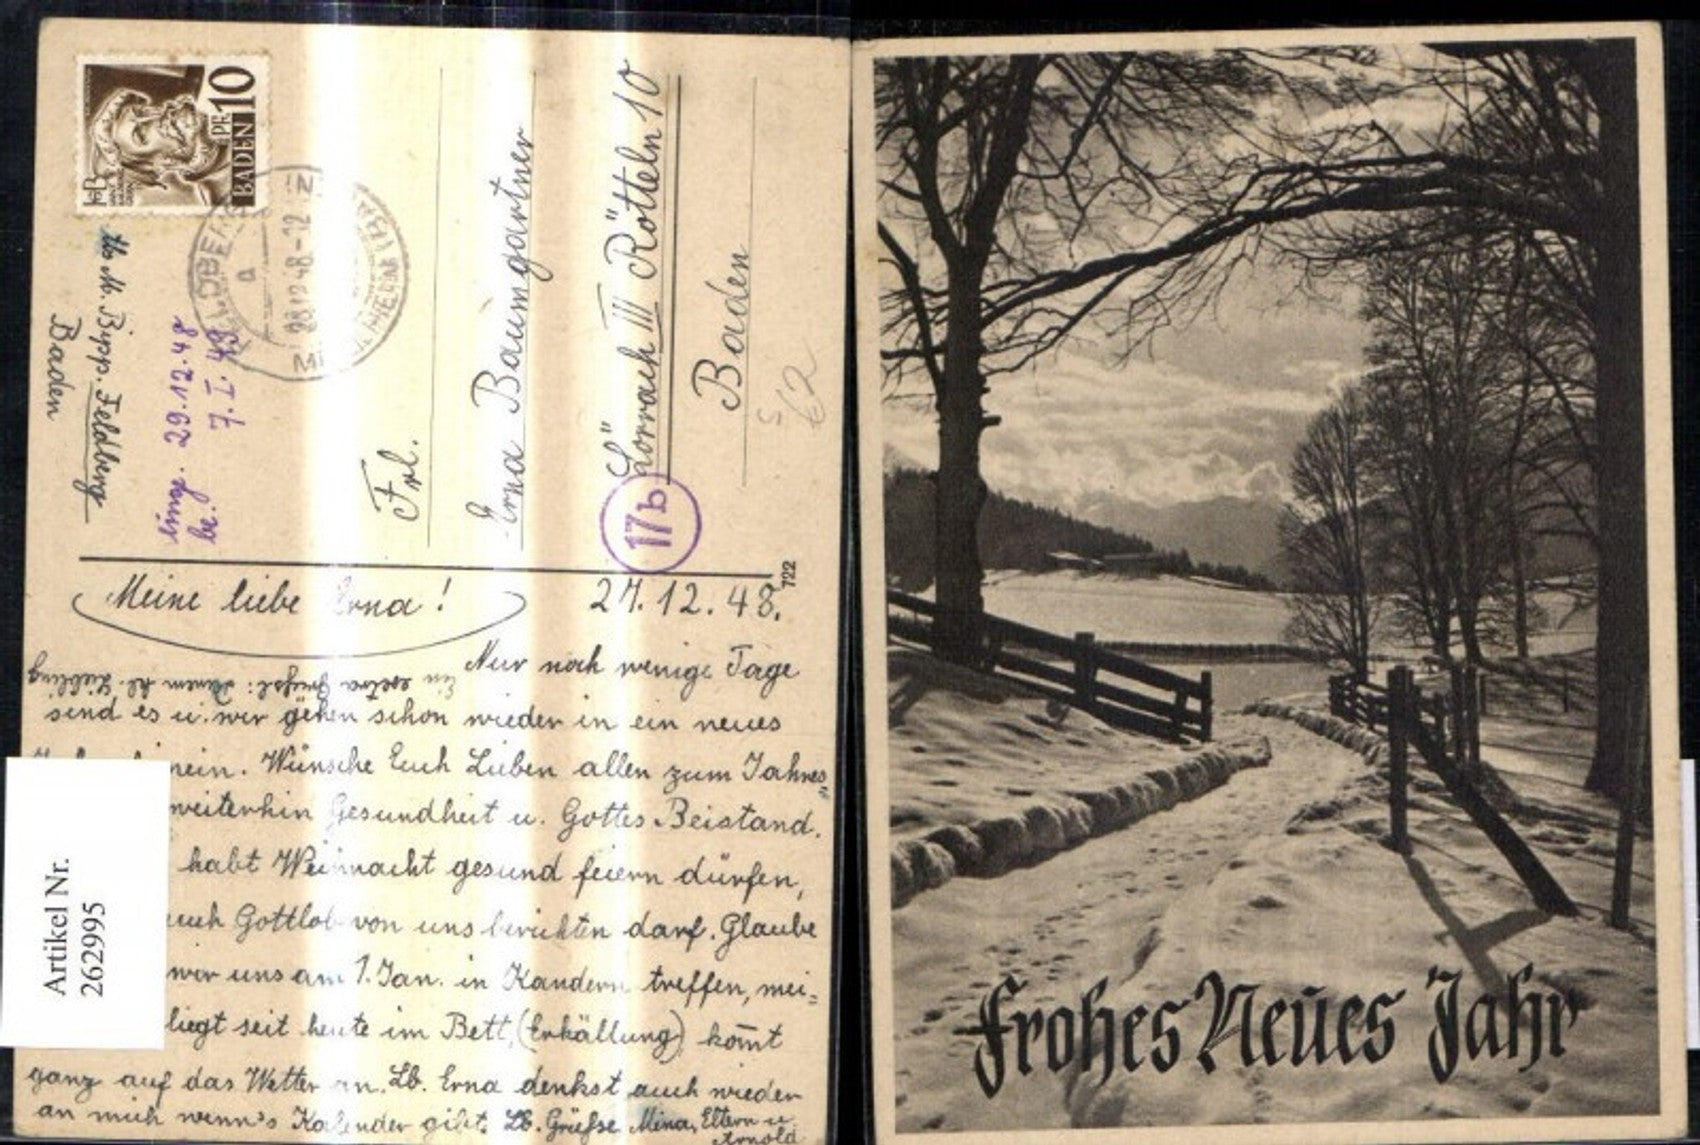 PF 10
BADEN
28.12.48.-12
Abs. M. Bipp. Feldberg
Baden
eing. 29.12.48
be. 7.I.49
Frl.
Erna Baumgartner
Lörrach III Rötteln 10
Baden
17b
722
Meine liebe Erna! 27.12.48.
Nur noch wenige Tage
Ein extra Grüßl: Deinem kl. Liebling
sind es u. wir gehen schon wieder in ein neues
hinein. Wünsche Euch Lieben allen zum Jahres"
weiterhin Gesundheit u. Gottes Beistand.
habt Weihnacht gesund feiern dürfen,
auch Gottlob von uns berichten darf. Glaube
wir uns am 1. Jan. in Kandern treffen, mei=
liegt seit heute im Bett, (Erkällung) kom̄t
ganz auf das Wetter an. Lb. Erna denkst auch wieder
an mich wenn's Kalender gibt. Lb. Grüße Mina, Eltern u.
Arnold
Artikel Nr.
262995
Frohes Neues Jahr